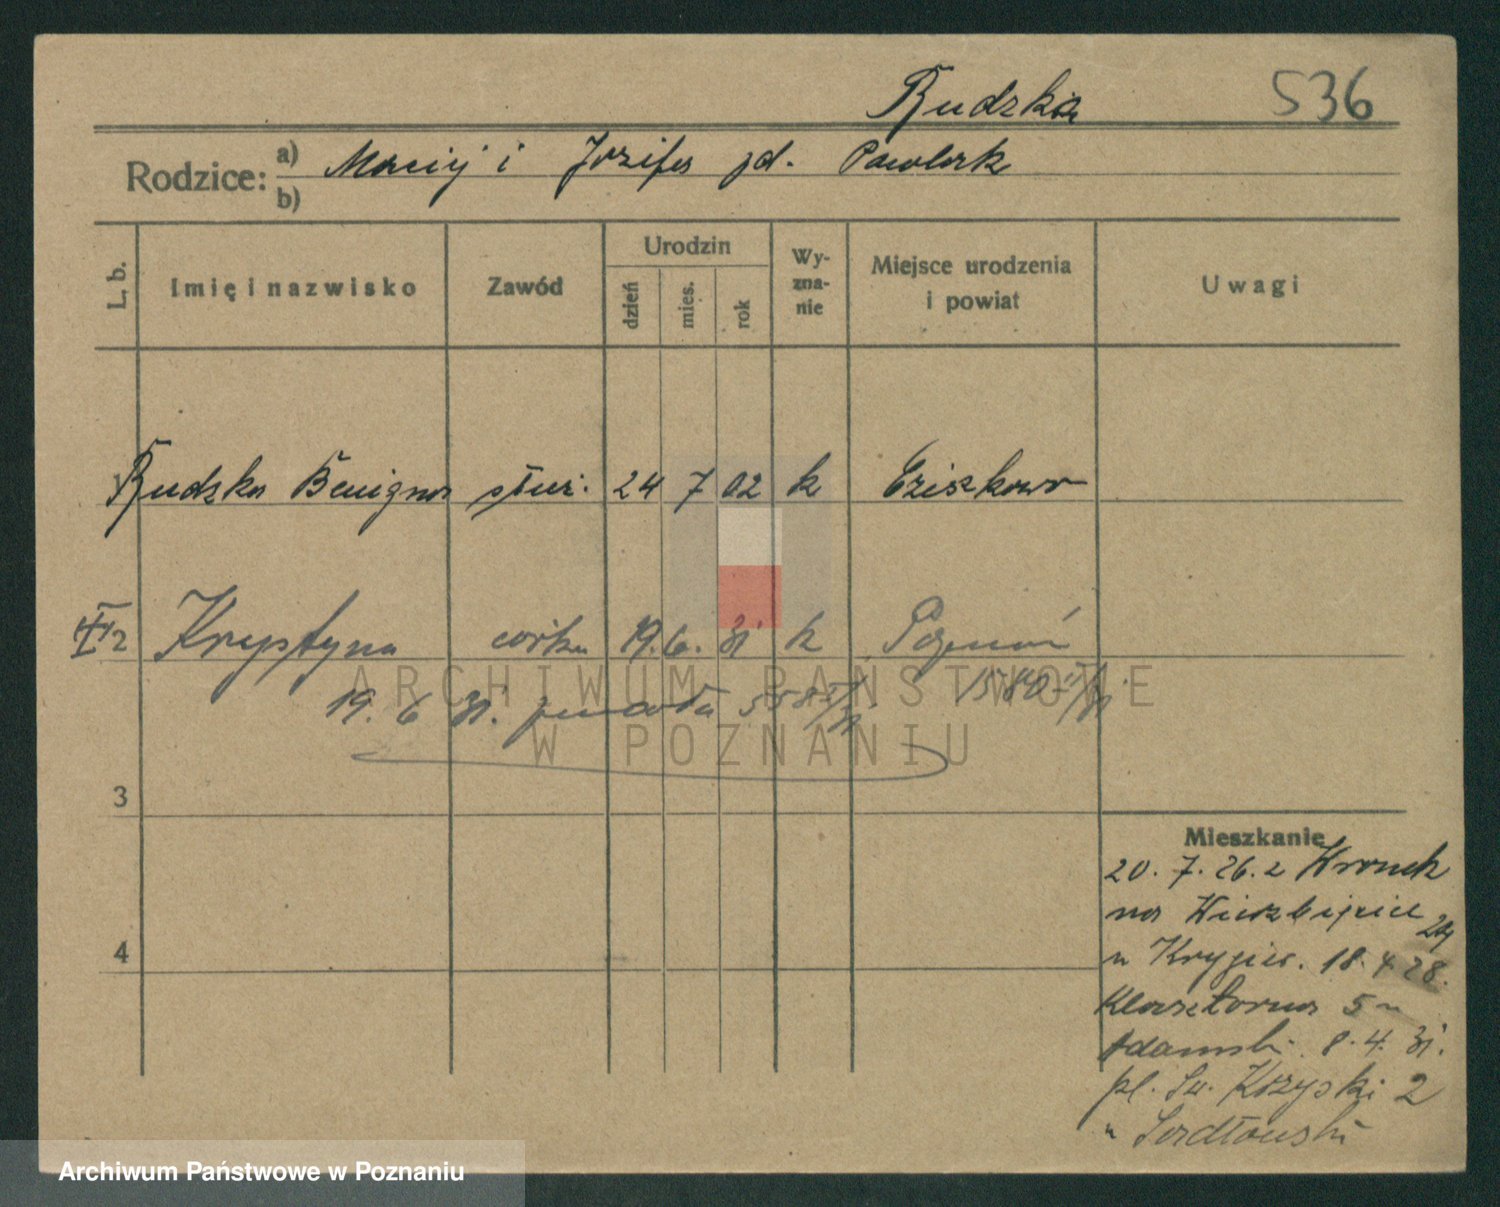 Rudzka 536
Rodzice: a) Maciej i Józefa zd. Pawlak
b)
L. b. Imię i nazwisko Zawód Urodzin dzień mies. rok Wyznanie Miejsce urodzenia i powiat Uwagi
Rudzka Benigna służ. 24 7 02 k
2 Krystyna córka 19. 6. 31 k Poznań
19. 6 31.
3
Mieszkanie
20. 7. 26. z Wronek
na Wierzbięcice
4
u 18. 4 28.
Klasztorna 5 u
Adamski. 8. 4. 31.
pl. Św. Krzyski 2
u
ARCHIWUM PAŃSTWOWE
W POZNANIU
Archiwum Państwowe w Poznaniu